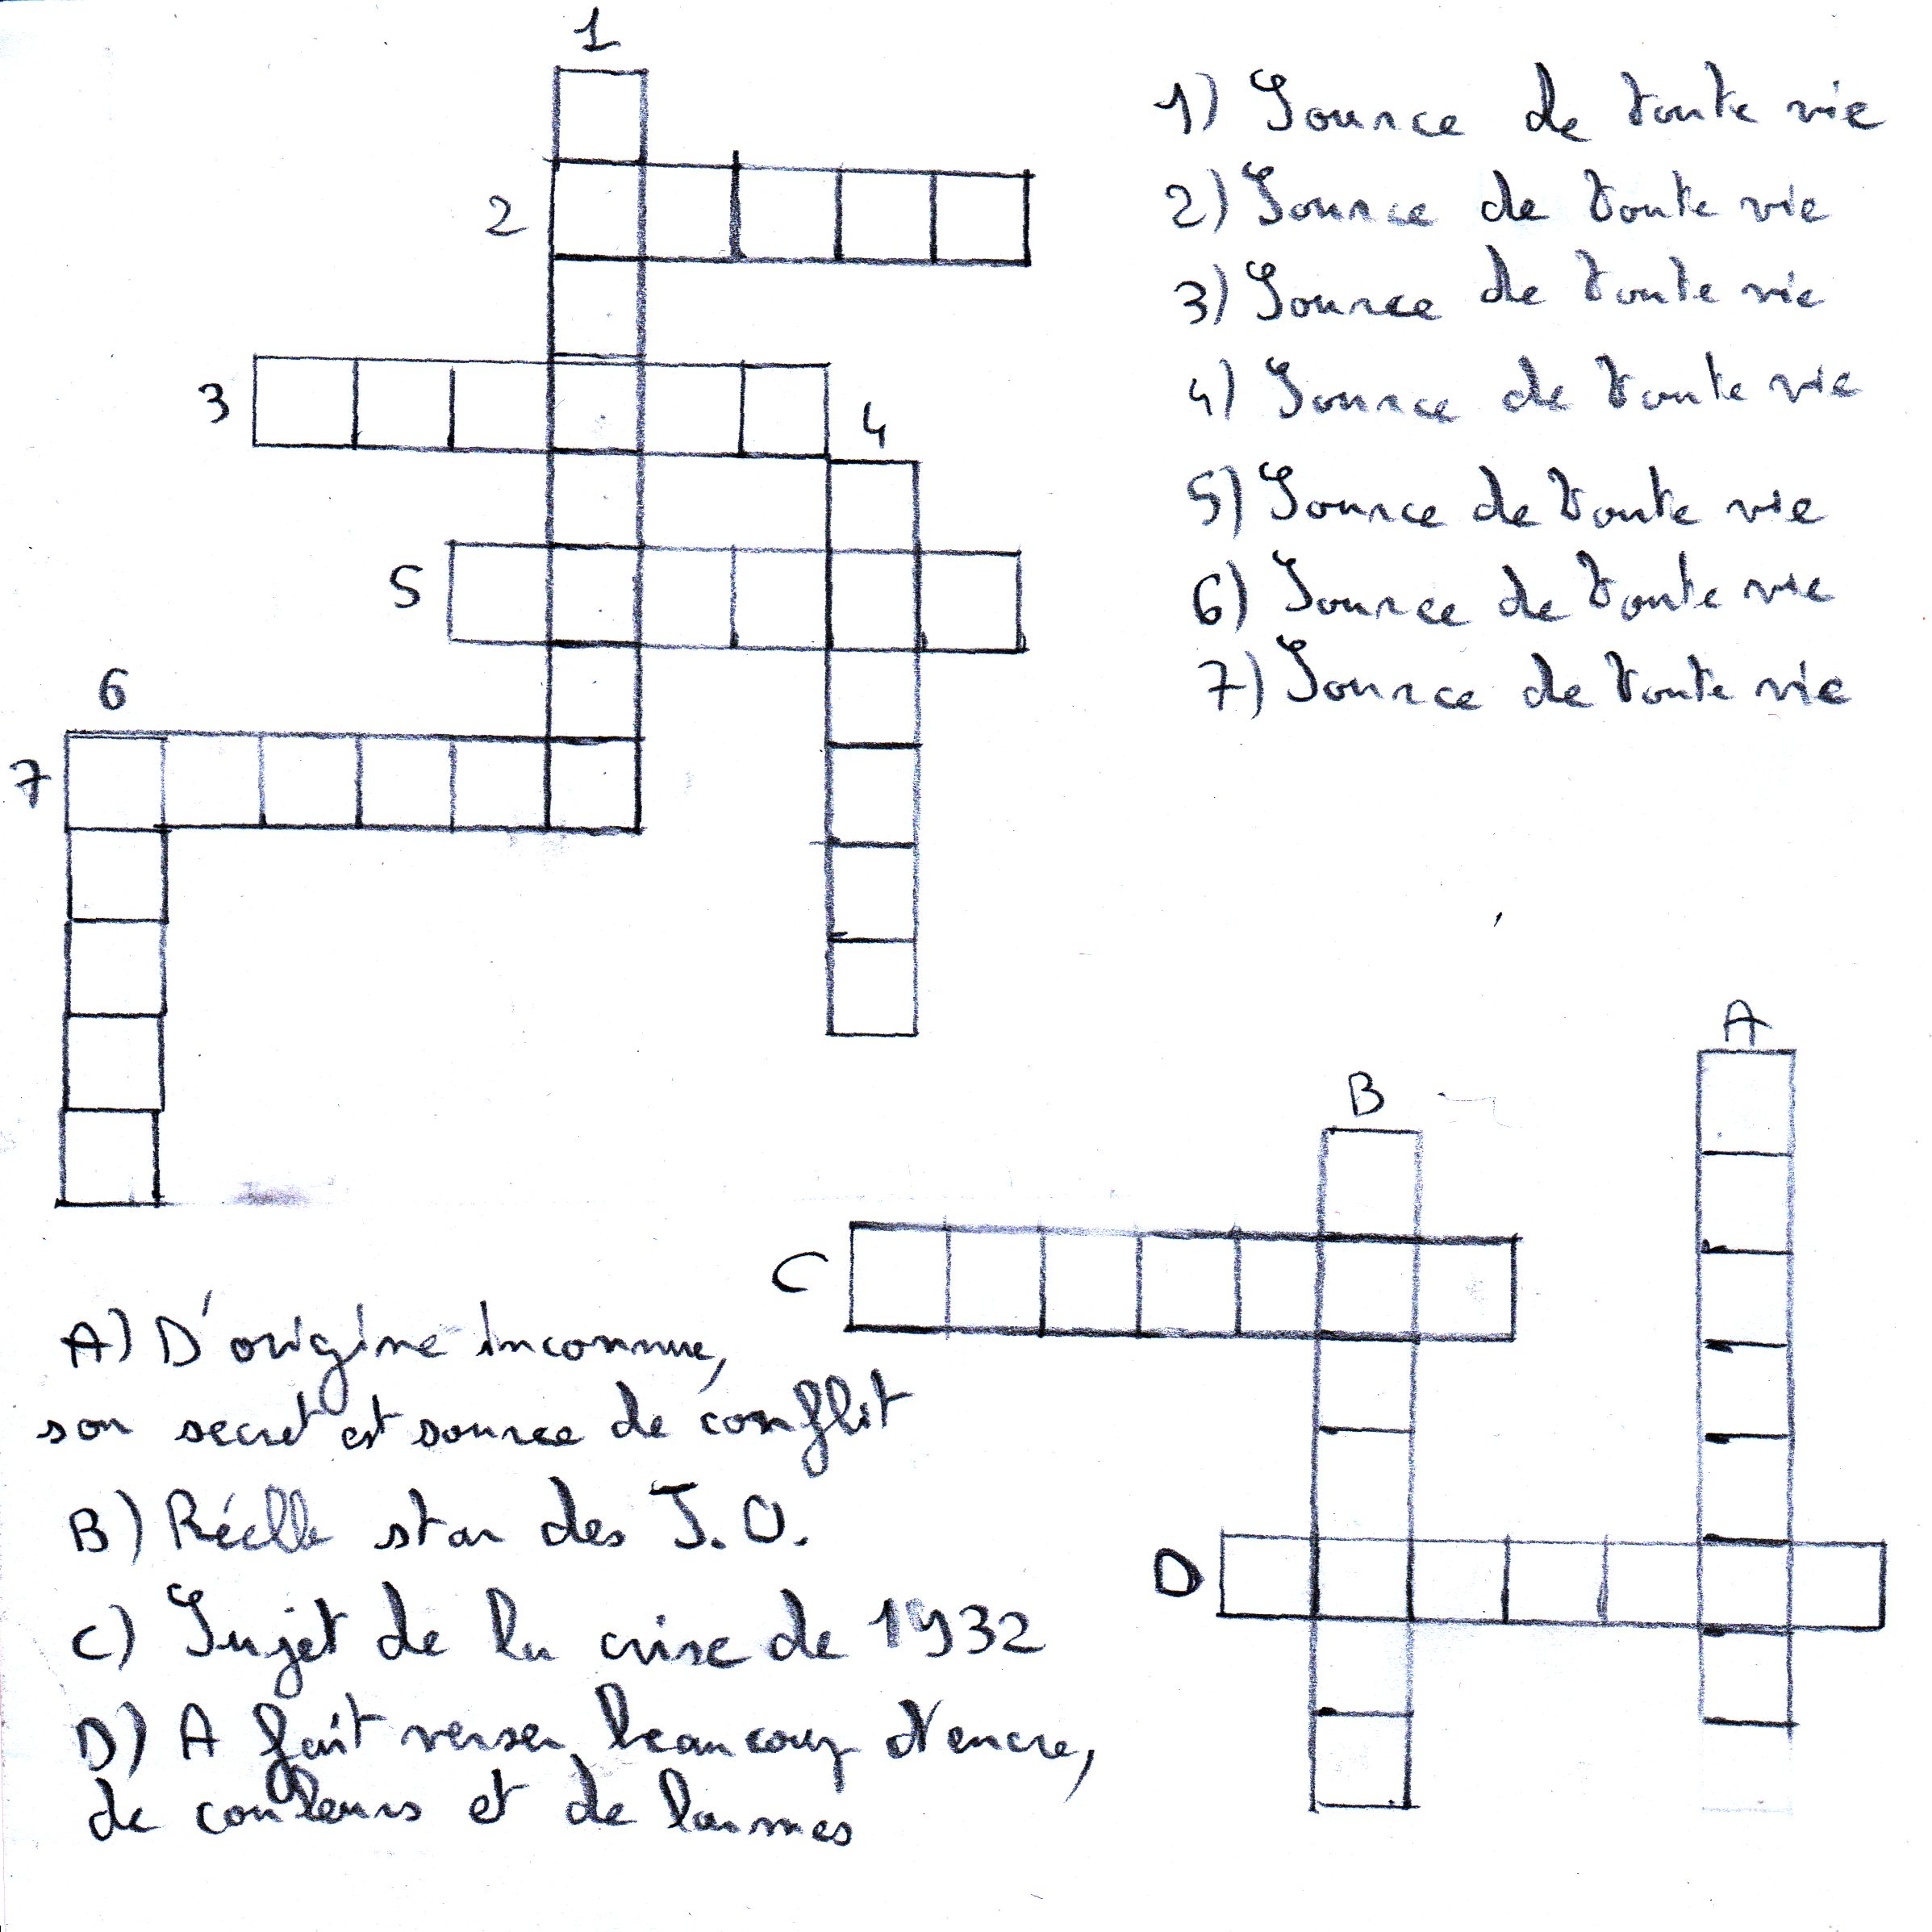 1
2
3
4
5
6
7
1) Source de toute vie
2) Source de toute vie
3) Source de toute vie
4) Source de toute vie
5) Source de toute vie
6) Source de toute vie
7) Source de toute vie
A
B
C
D
A) D'origine inconnue,
son secret est source de conflit
B) Réelle star des J.O.
C) Sujet de la crise de 1932
D) A fait verser beaucoup d'encre,
de couleurs et de larmes